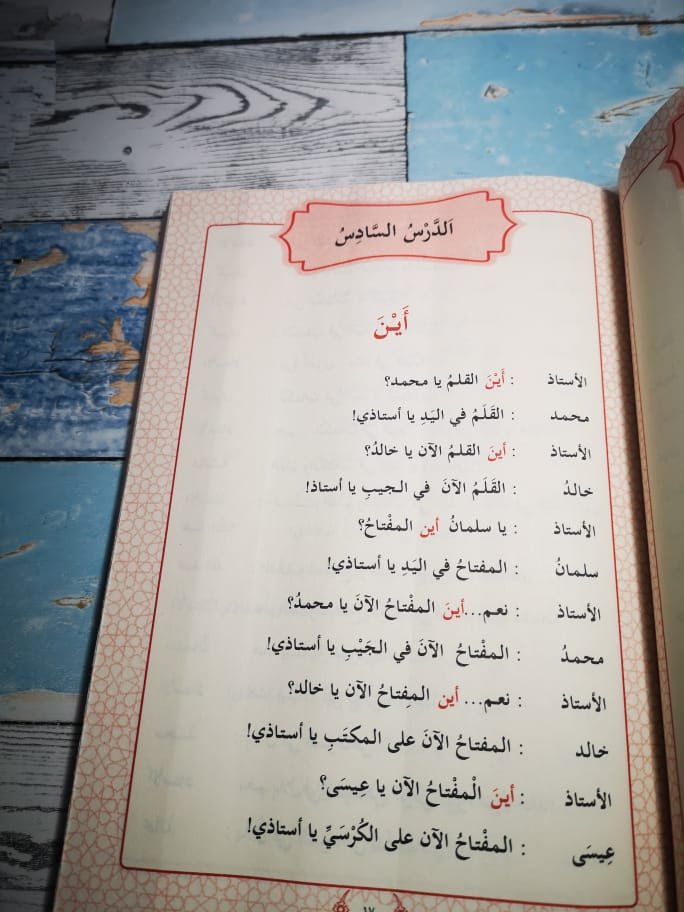 اَلدَّرْسُ السَّادِسُ
أَيْنَ
الأستاذ : أَيْنَ القلمُ يا محمد؟
محمد : القَلَمُ في اليَدِ يا أستاذي!
الأستاذ : أينَ القلمُ الآن يا خالدُ؟
خالدُ : القَلَمُ الآنَ في الجيبِ يا أستاذ!
الأستاذ : يا سلمانُ أين المفْتاحُ؟
سلمانُ : المفتاحُ في اليَدِ يا أستاذي!
الأستاذ : نعم...أينَ المفْتاحُ الآنَ يا محمدُ؟
محمدُ : المفْتاحُ الآنَ في الجَيْبِ يا أستاذي!
الأستاذ : نعم... أين المِفتاحُ الآن يا خالد؟
خالد : المفتاحُ الآنَ على المكتَبِ يا أستاذي!
الأستاذ : أينَ الْمفْتاحُ الآن يا عِيسَى؟
عِيسَى : المفْتاحُ الآن على الكُرْسَيِّ يا أستاذي!
١٧